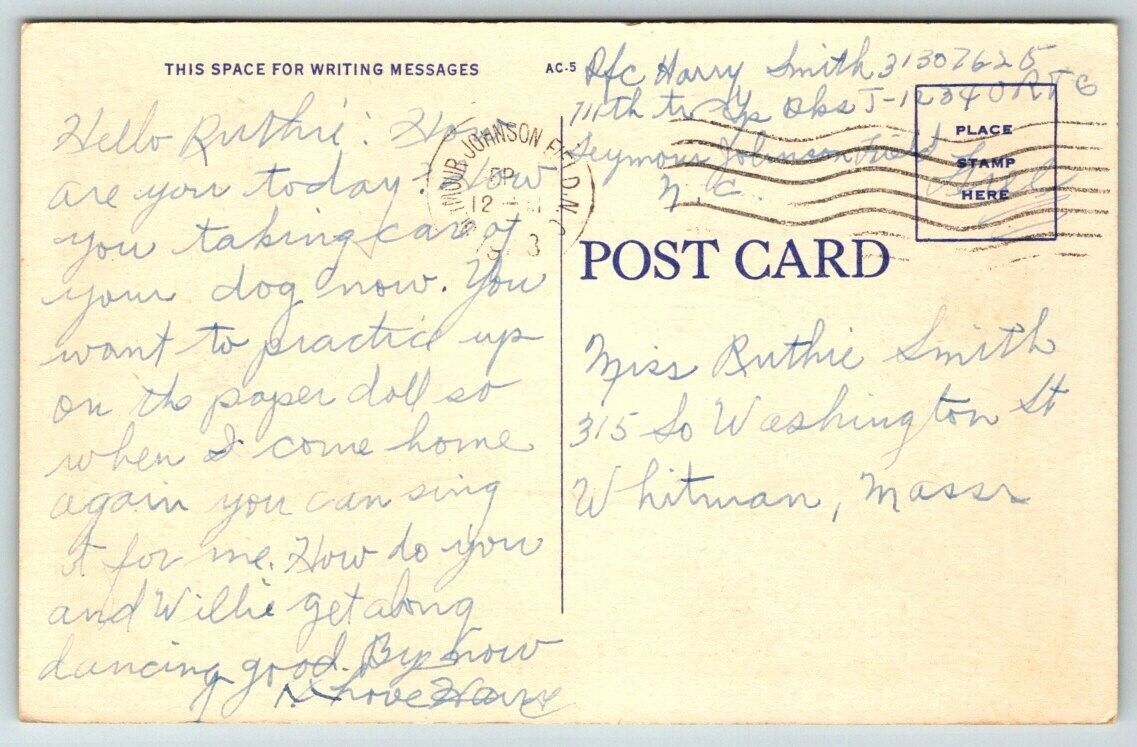 THIS SPACE FOR WRITING MESSAGES
AC-5
Hello Ruthie: How
are you today? How
you taking car of
your dog now. You
want to practice up
on the paper doll so
when I come home
again you can sing
it for me. How do you
and Willie get along
dancing good. By now
Love Harry
Pfc Harry Smith 31307625
711th tr Gp Bks T-1234 URTC
Seymour Johnson Field
N. C
Free
SEYMOUR JOHNSON FIELD, N.C.
SEP
12
PLACE
STAMP
HERE
POST CARD
Miss Ruthie Smith
315 So Washington St
Whitman, Mass